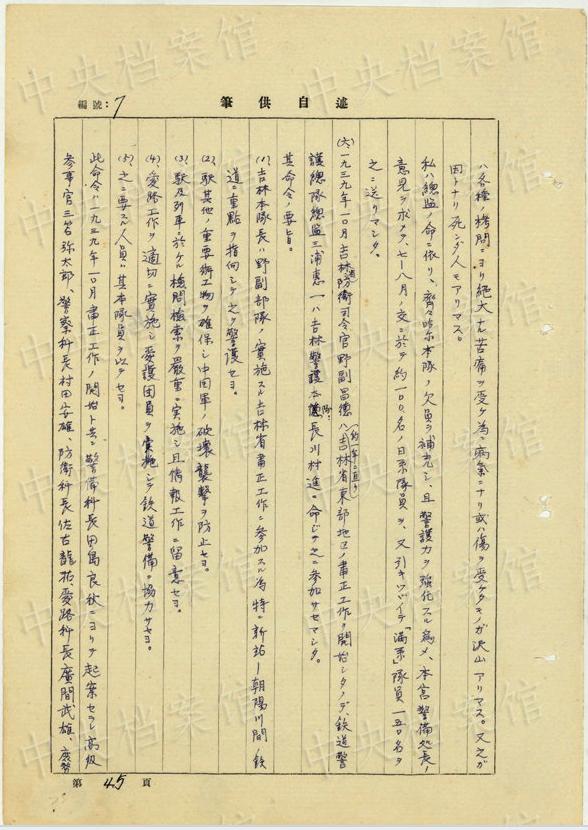 中央档案馆
編號：7
筆供自述
ハ各種ノ拷問ニヨリ絶大ナル苦痛ヲ受ケ為ニ病氣ニナリ或ハ傷ヲ受ケタモノガ沢山アリマス。又之ガ
因トナリ死ンダ人モアリマス。
私ハ總監ノ命ニ依リ、齊々哈尔本隊ノ欠員ヲ補充シ、且警護力ヲ強化スル為メ、本宮警備処長ノ
意見ヲ求メテ、七－八月ノ交ニ於テ約一〇〇名ノ日系隊員ヲ、又引キツヾイテ「満系」隊員一五〇名ヲ
之ニ送リマシタ。
(六)一九三九年一〇月吉林防衛司令官野副昌德ハ(約一年ニ亘リ)吉林省東部地区ノ粛正工作ヲ開始シタノデ鉄道警
護總隊總監三浦惠一ハ吉林警護本隊長川村進ニ命ジテ之ニ参加サセマシタ。
其命令ノ要旨。
(1)、吉林本隊長ハ野副部隊ノ實施スル吉林省粛正工作ニ参加スル為特ニ新站－朝陽川間ノ鉄
道ニ重點ヲ指向シテ之ヲ警護セヨ。
(2)、駅其他ノ重要術工物ヲ確保シ中国軍ノ破壊襲撃ヲ防止セヨ。
(3)、駅及列車ニ於ケル檢問檢索ヲ嚴重ニ実施シ且情報工作ニ留意セヨ。
(4)、愛路工作ヲ適切ニ實施シ愛護団員ヲシテ鉄道警備ニ協力サセヨ。
(5)、之ニ要スル人員ハ其本隊員ヲ以テセヨ。
此命令ハ一九三九年一〇月粛正工作ノ開始ト共ニ警備科長田島良秋ニヨリテ起案セラレ高級
参事官三笘弥太郎、警察科長村田安雄、防衛科長佐古龍祐、愛路科長廣間武雄、庶務
第 45 頁